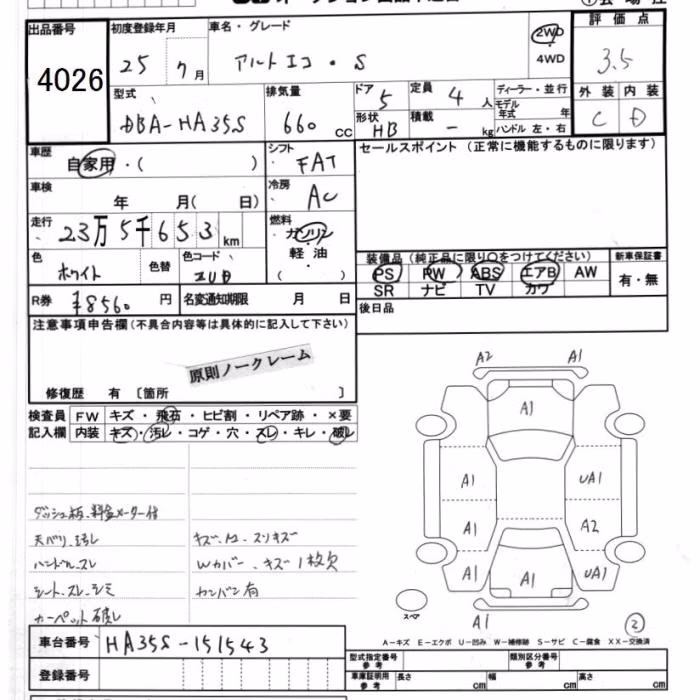 出品番号 初度登録年月 車名・グレード 2WD ・ 4WD 評価点
4026 25 7月 アルトエコ・S 3.5
型式 排気量 ドア 5 定員 4 人 ディーラー・並行 外装 内装
DBA-HA35S 660 cc 形状 HB 積載 - kg モデル年式 年 C D
ハンドル 左・右
車歴 自家用・( ) シフト FAT セールスポイント (正常に機能するものに限ります)
車検 年 月( 日) 冷房 AC
走行 23万5千653 km 燃料 ガソリン・軽油 ( )
色 ホワイト 色替 色コード ZUB 装備品 (純正品に限り○をつけてください) 新車保証書
PS PW ABS エアB AW 有・無
SR ナビ TV カワ
R券 ¥8560 円 名変通知期限 月 日 後日品
注意事項申告欄 (不具合内容等は具体的に記入して下さい)
原則ノークレーム
修復歴 有 〔箇所 〕
検査員記入欄 FW キズ・飛石・ヒビ割・リペア跡・×要
内装 キズ・汚レ・コゲ・穴・スレ・キレ・破レ
A2 A1
A1
A1 UA1
A1 A2
A1 A1 UA1
スペア A1
ダッシュ板、料金メーター付
天バリ、汚レ キズ、A2、スリキズ
ハンドル、スレ Wカバー、キズ1枚欠
シート、スレ、シミ カンバン有
カーペット破レ
②
A-キズ E-エクボ U-凹み W-補修跡 S-サビ C-腐食 XX-交換済
車台番号 HA35S-151543
型式指定番号 参考 類別区分番号 参考
登録番号 車庫証明用 参考 長さ cm 幅 cm 高さ cm